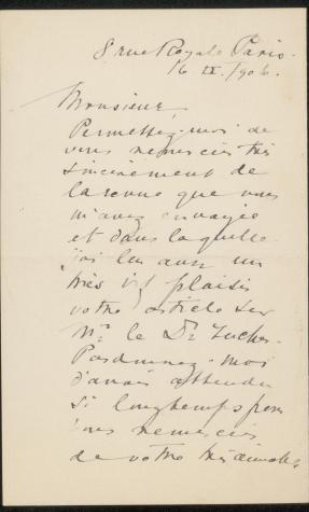 8 rue Royale Paris.
16 IX. 1906.
Monsieur,
Permettez-moi de
vous remercier très
sincèrement de
la revue que vous
m'avez envoyée
et dans laquelle
j'ai lu avec un
très vif plaisir
votre article sur
Mr. le Dr
Pardonnez-moi
d'avoir attendu
si longtemps pour
vous remercier
de votre très aimable